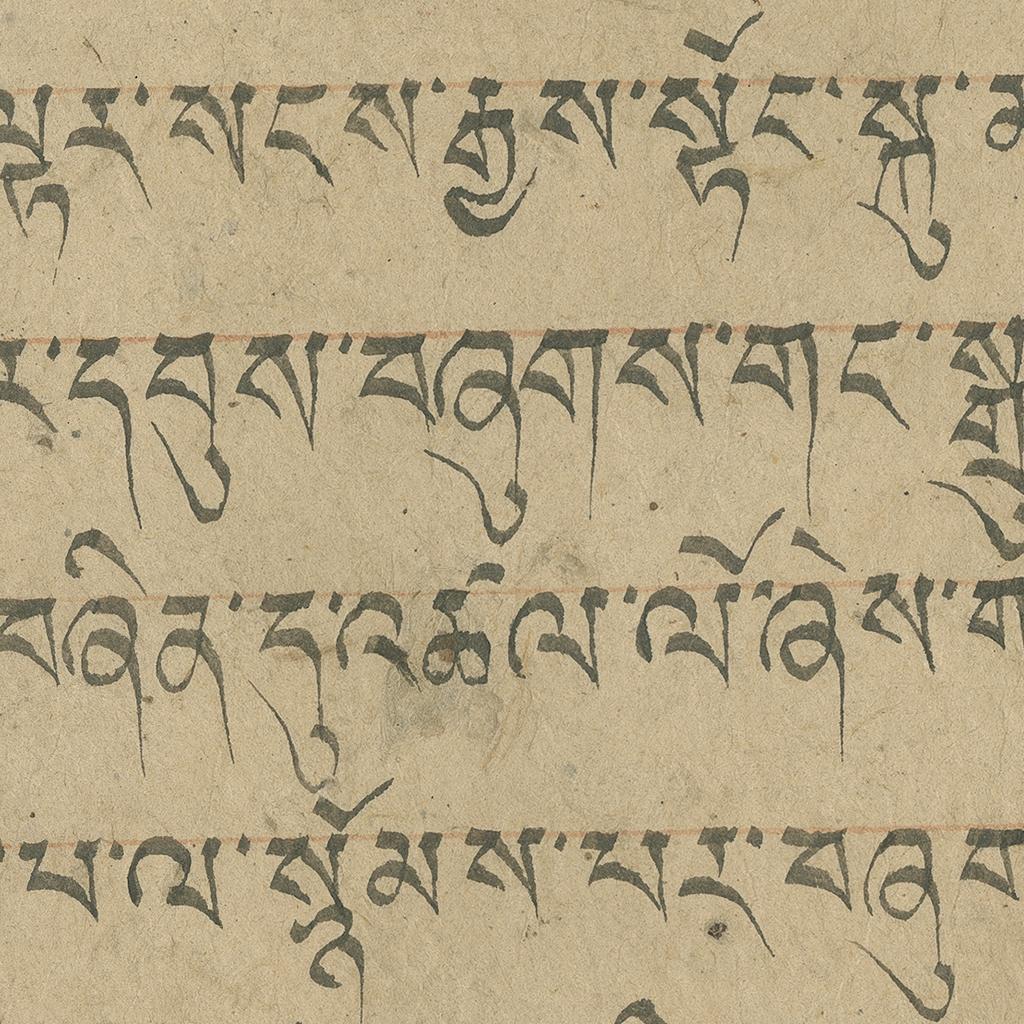 སངས་རྒྱས་སྟོང་སྐུ་
ར་དབུས་བཞུགས་གང་སྒྲུ
བཞིན་དུ་འཚལ་ལོ་ཞེས་ག
པ་ལ་སྙོམས་པར་བཞུག